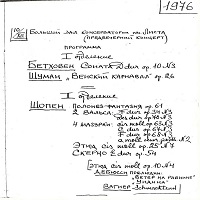 1976
10/XII Большой зал консерватории им. Листа
(предвечерний концерт)
программа
I отделение
Бетховен Соната D dur op. 10 №3
Шуман „Венский карнавал" op. 26
II отделение
Шопен Полонез-фантазия op. 61
2 вальса: F dur op. 34 №3
des dur op. 64 №1
4 мазурки: cis moll op. 63 №3
C dur op. 67 №3
F dur op. 68 №3
a moll op. №2
Этюд cis moll op. 25 №7
Скерцо E dur op. 54
Этюд cis moll op. 10 №4
Дебюсси прелюдии:
"Ветер на равнине"
"Ундина"
Вагнер-